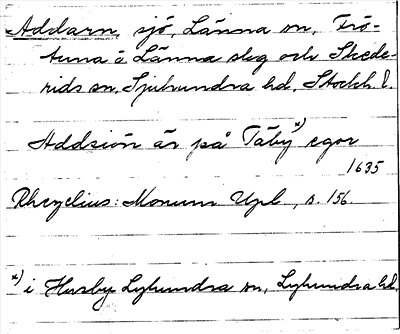 Addarn, sjö, Länna sn, Frö-
tuna å Länna slg och Skede-
rids sn, Sjuhundra hd, Stockh. l.
Addsiön är på Täby*) egor
1635
Rhezelius: Monum Upl., s. 156.
*) i Husby Lyhundra sn, Lyhundra hd.